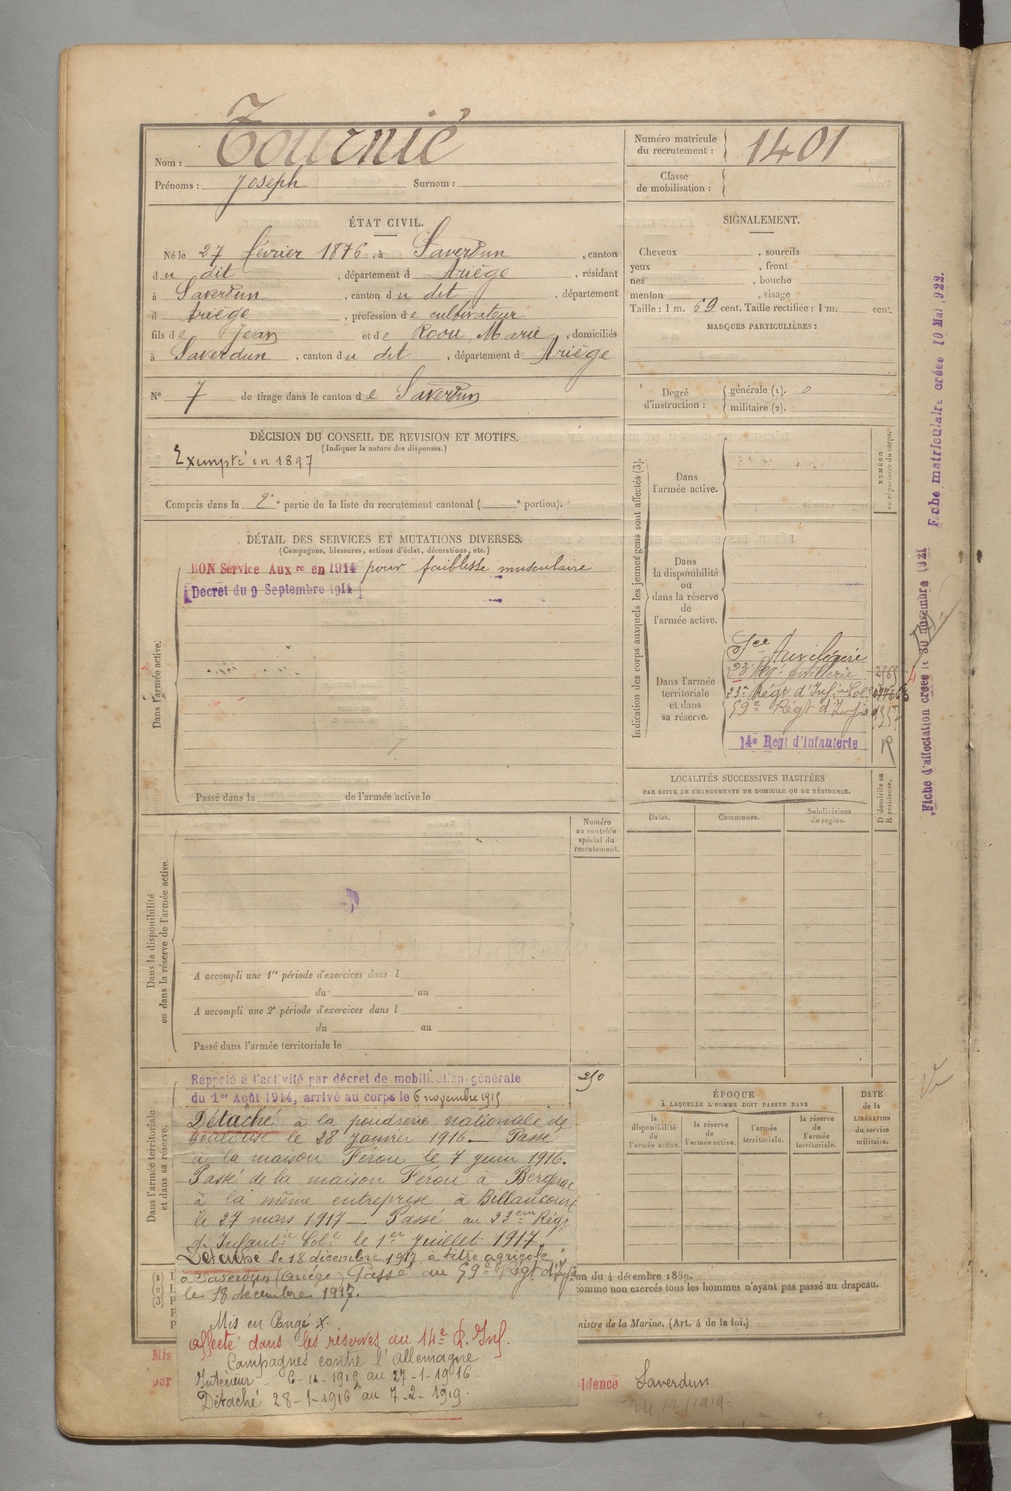 Nom : Tournié
Prénoms : Joseph Surnom :
Numéro matricule du recrutement : 1401
Classe de mobilisation :
ÉTAT CIVIL.
Né le 27 février 1876, à Saverdun, canton
du dit, département d Ariège, résidant
à Saverdun, canton du dit, département
d Ariège, profession de cultivateur
fils de Jean et de Marie, domiciliés
à Saverdun, canton du dit, département d Ariège
N° 7 de tirage dans le canton de Saverdun
SIGNALEMENT.
Cheveux , sourcils
yeux , front
nez , bouche
menton , visage
Taille : 1 m. 69 cent. Taille rectifiée : 1 m. cent.
MARQUES PARTICULIÈRES :
Degré d'instruction : générale (1). 0
militaire (2).
DÉCISION DU CONSEIL DE REVISION ET MOTIFS.
(Indiquer la nature des dispenses.)
Exempté en 1897
Compris dans la 2e partie de la liste du recrutement cantonal ( e portion).
DÉTAIL DES SERVICES ET MUTATIONS DIVERSES.
(Campagnes, blessures, actions d'éclat, décorations, etc.)
BON Service Auxre en 1914 pour faiblesse musculaire
Décret du 9 Septembre 1914
Dans l'armée active.
Passé dans la de l'armée active le
Indication des corps auxquels les jeunes gens sont affectés (3).
NUMÉRO
Dans l'armée active.
Dans la disponibilité ou dans la réserve de l'armée active.
Dans l'armée territoriale et dans sa réserve.
Sce Auxiliaire
23e Rég. Artillerie
23e Régt d'Infie Cole
59e Régt d'Infie
14e Regt d'Infanterie R
LOCALITÉS SUCCESSIVES HABITÉES
PAR SUITE DE CHANGEMENTS DE DOMICILE OU DE RÉSIDENCE.
Dates. Communes. Subdivisions de région. D domicile ou R résidence.
Dans la disponibilité ou dans la réserve de l'armée active.
Numéro au contrôle spécial du recrutement.
A accompli une 1re période d'exercices dans l
du au
A accompli une 2e période d'exercices dans l
du au
Passé dans l'armée territoriale le
Dans l'armée territoriale et dans sa réserve.
Rappelé à l'activité par décret de mobilisation générale
du 1er Août 1914, arrivé au corps le 6 novembre 1915
250
Détaché à la poudrerie nationale de
Toulouse le 28 janvier 1916 — Passé
à la maison Férou le 7 juin 1916.
Passé de la maison Férou à Bergerac
à la même entreprise à Billancourt
le 27 mars 1917 — Passé au 23eme Régt
d'Infantie Cole le 1er juillet 1917
Détaché le 18 décembre 1917 à titre agricole
à Saverdun (Ariège) Passé au 59e Régt d'Infie
le 18 décembre 1917.
Mis en Congé X.
Affecté dans les réserves du 14e R. Inf.
Campagnes contre l'Allemagne
Intérieur 6-11-1915 au 27-1-1916
Détaché 28-1-1916 au 7-2-1919.
ÉPOQUE
À LAQUELLE L'HOMME DOIT PASSER DANS
la disponibilité de l'armée active. la réserve de l'armée active. l'armée territoriale. la réserve de l'armée territoriale.
DATE de la LIBÉRATION du service militaire.
(1)
(2)
(3)
on du 4 décembre 1889.
comme non exercés tous les hommes n'ayant pas passé au drapeau.
nistre de la Marine. (Art. 4 de la loi.)
Mis
par
idence Saverdun
Fiche d'affectation créée le 30 novembre 1921
Fiche matriculaire créée 10 Mai 1922.